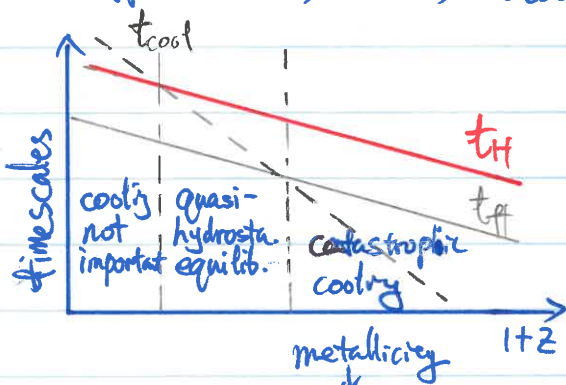 tcool
tH
tff
timescales
cooling
not
important
quasi-
hydrosta.
equilib.
catastrophic
cooling
1+z
metallicity